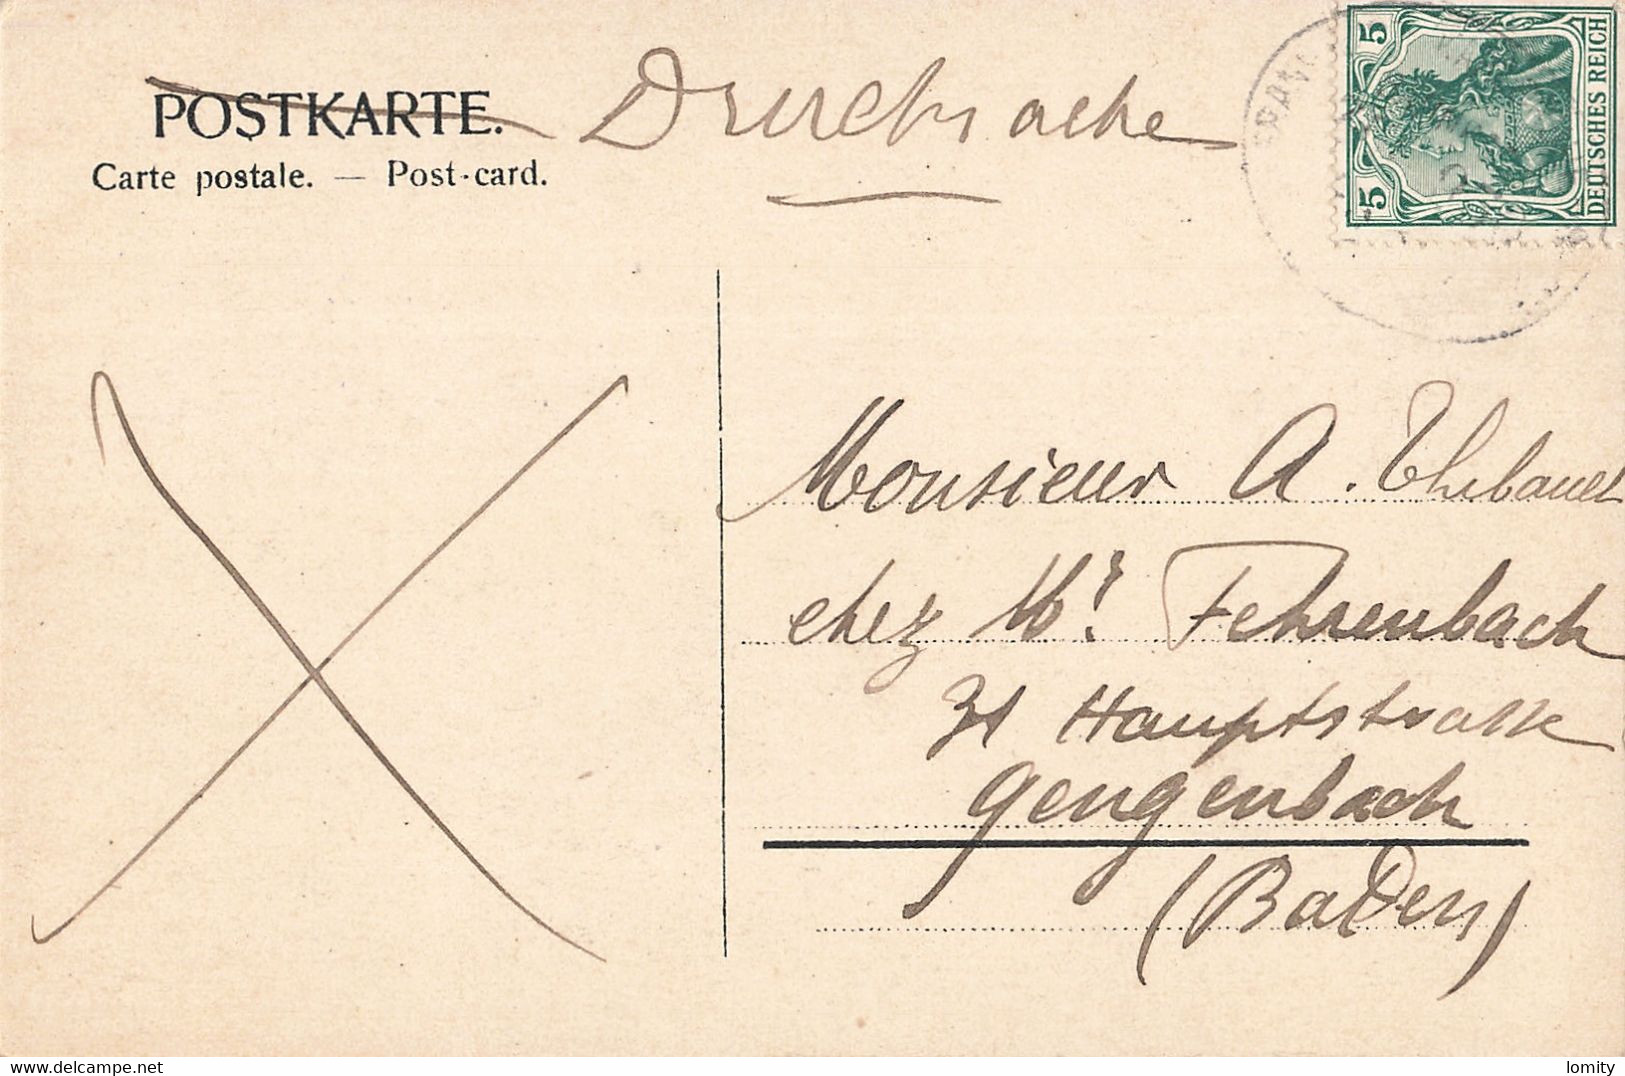 POSTKARTE. Drucksache
Carte postale. — Post-card.
5 5
DEUTSCHES REICH
Monsieur A. Thibault
chez Mr. Fehrenbach
31 Hauptstrasse
Gengenbach
(Baden)
lomity